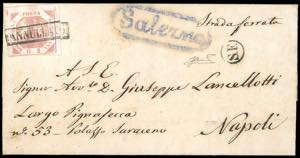 POSTA
ANNULLATO
Salerno
Strada ferrata
SF
A S. E.
Signor Avv.to D. Giuseppe Lancellotti
Largo Pignasecca
n.° 53 - Palazzo Saraceno
Napoli